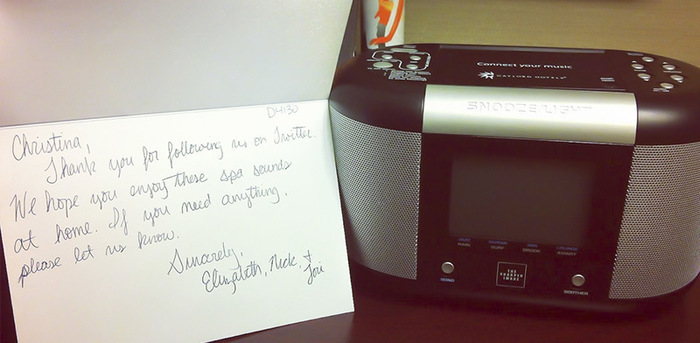 D4130
Christina,
Thank you for following us on Twitter.
We hope you enjoy these spa sounds
at home. If you need anything,
please let us know.
Sincerely,
Elizabeth, Nick, &
Connect your music
GAYLORD HOTELS
SNOOZE LIGHT
THE
SHARPER
IMAGE